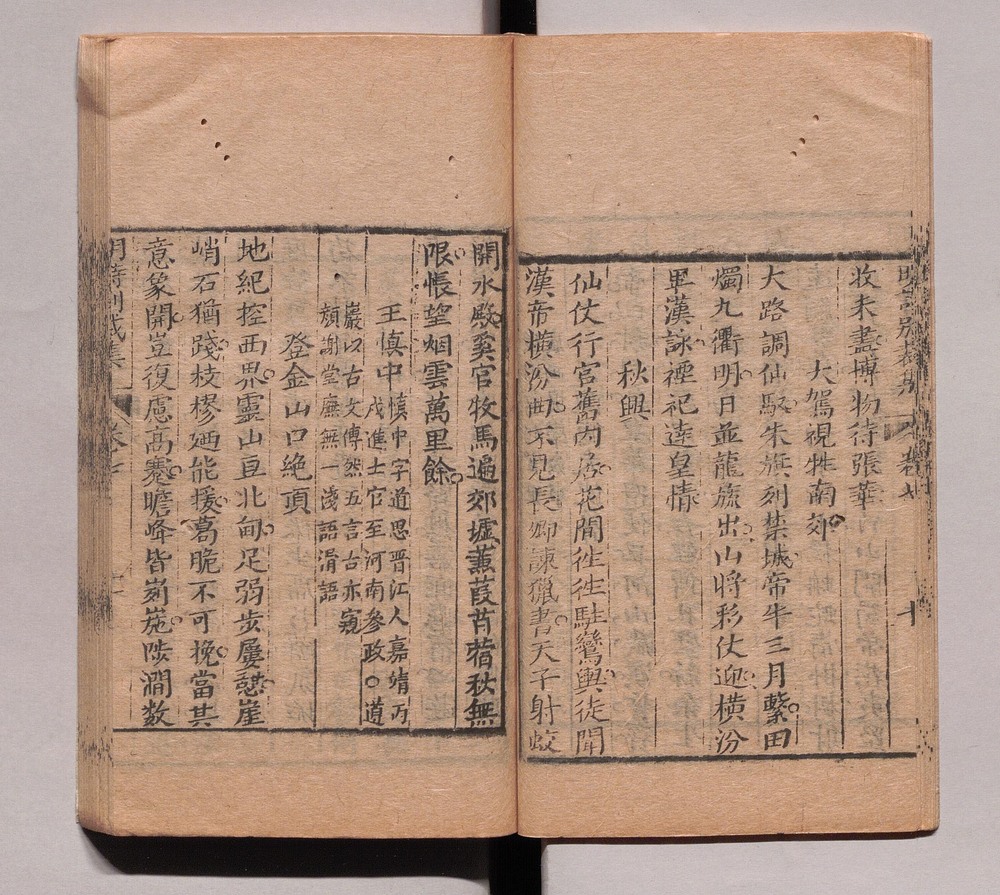 明詩別裁集 卷七 十
收未盡博物待張華
大駕視牲南郊
大路調仙馭朱旗列禁城帝牛三月繫田
燭九衢明日並龍旂出山將彩仗迎橫汾
畢漢詠禋祀達皇情
秋興
仙仗行宮舊內居花間徃徃駐鸞輿徒聞
漢帝橫汾曲不見長卿諫獵書天子射蛟
開水殿奚官牧馬遍郊墟薰葭苜蓿秋無
限悵望烟雲萬里餘
王慎中
慎中字道思晋江人嘉靖丙
戌進士官至河南參政○道
巖以古文傳然五言古亦窺
顏謝堂廡無一淺語滑語
登金山口絶頂
地紀控西界靈山亘北甸足弱步屢憇崖
峭石猶踐枝樛廼能援葛脆不可挽當其
意象開豈復慮高蹇瞻峰皆剡崺陟澗数
明詩別裁集 卷七